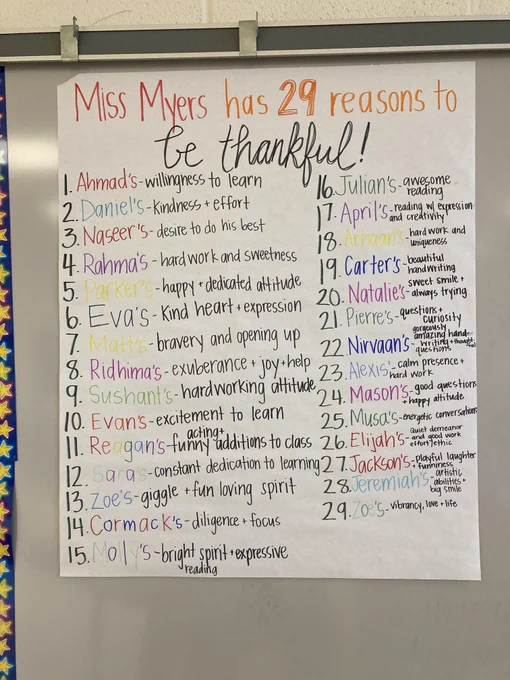 Miss Myers has 29 reasons to
be thankful!
1. Ahmad's - willingness to learn
2. Daniel's - Kindness + effort
3. Naseer's - desire to do his best
4. Rahma's - hard work and sweetness
5. Parker's - happy + dedicated attitude
6. Eva's - Kind heart + expression
7. Matt's - bravery and opening up
8. Ridhima's - exuberance + joy + help
9. Sushant's - hardworking attitude
10. Evan's - excitement to learn
11. Reagan's - funny acting + additions to class
12. Sara's - constant dedication to learning
13. Zoe's - giggle + fun loving spirit
14. Cormack's - diligence + focus
15. Molly's - bright spirit + expressive
reading
16. Julian's - awesome
reading
17. April's - reading w/ expression
and creativity
18. Arhaan's - hard work and
uniqueness
19. Carter's - beautiful
handwriting
20. Natalie's - sweet smile +
always trying
21. Pierre's - questions +
curiosity
22. Nirvaan's - gorgeously
amazing hand-
writing + thoughtful
questions
23. Alexis' - calm presence +
hard work
24. Mason's - good questions
+ happy attitude
25. Musa's - energetic conversations
26. Elijah's - quiet demeanor
and good work
effort/ethic
27. Jackson's - Playful laughter
+ funniness
28. Jeremiah's - artistic
abilities +
big smile
29. Zoe's - vibrancy, love + life